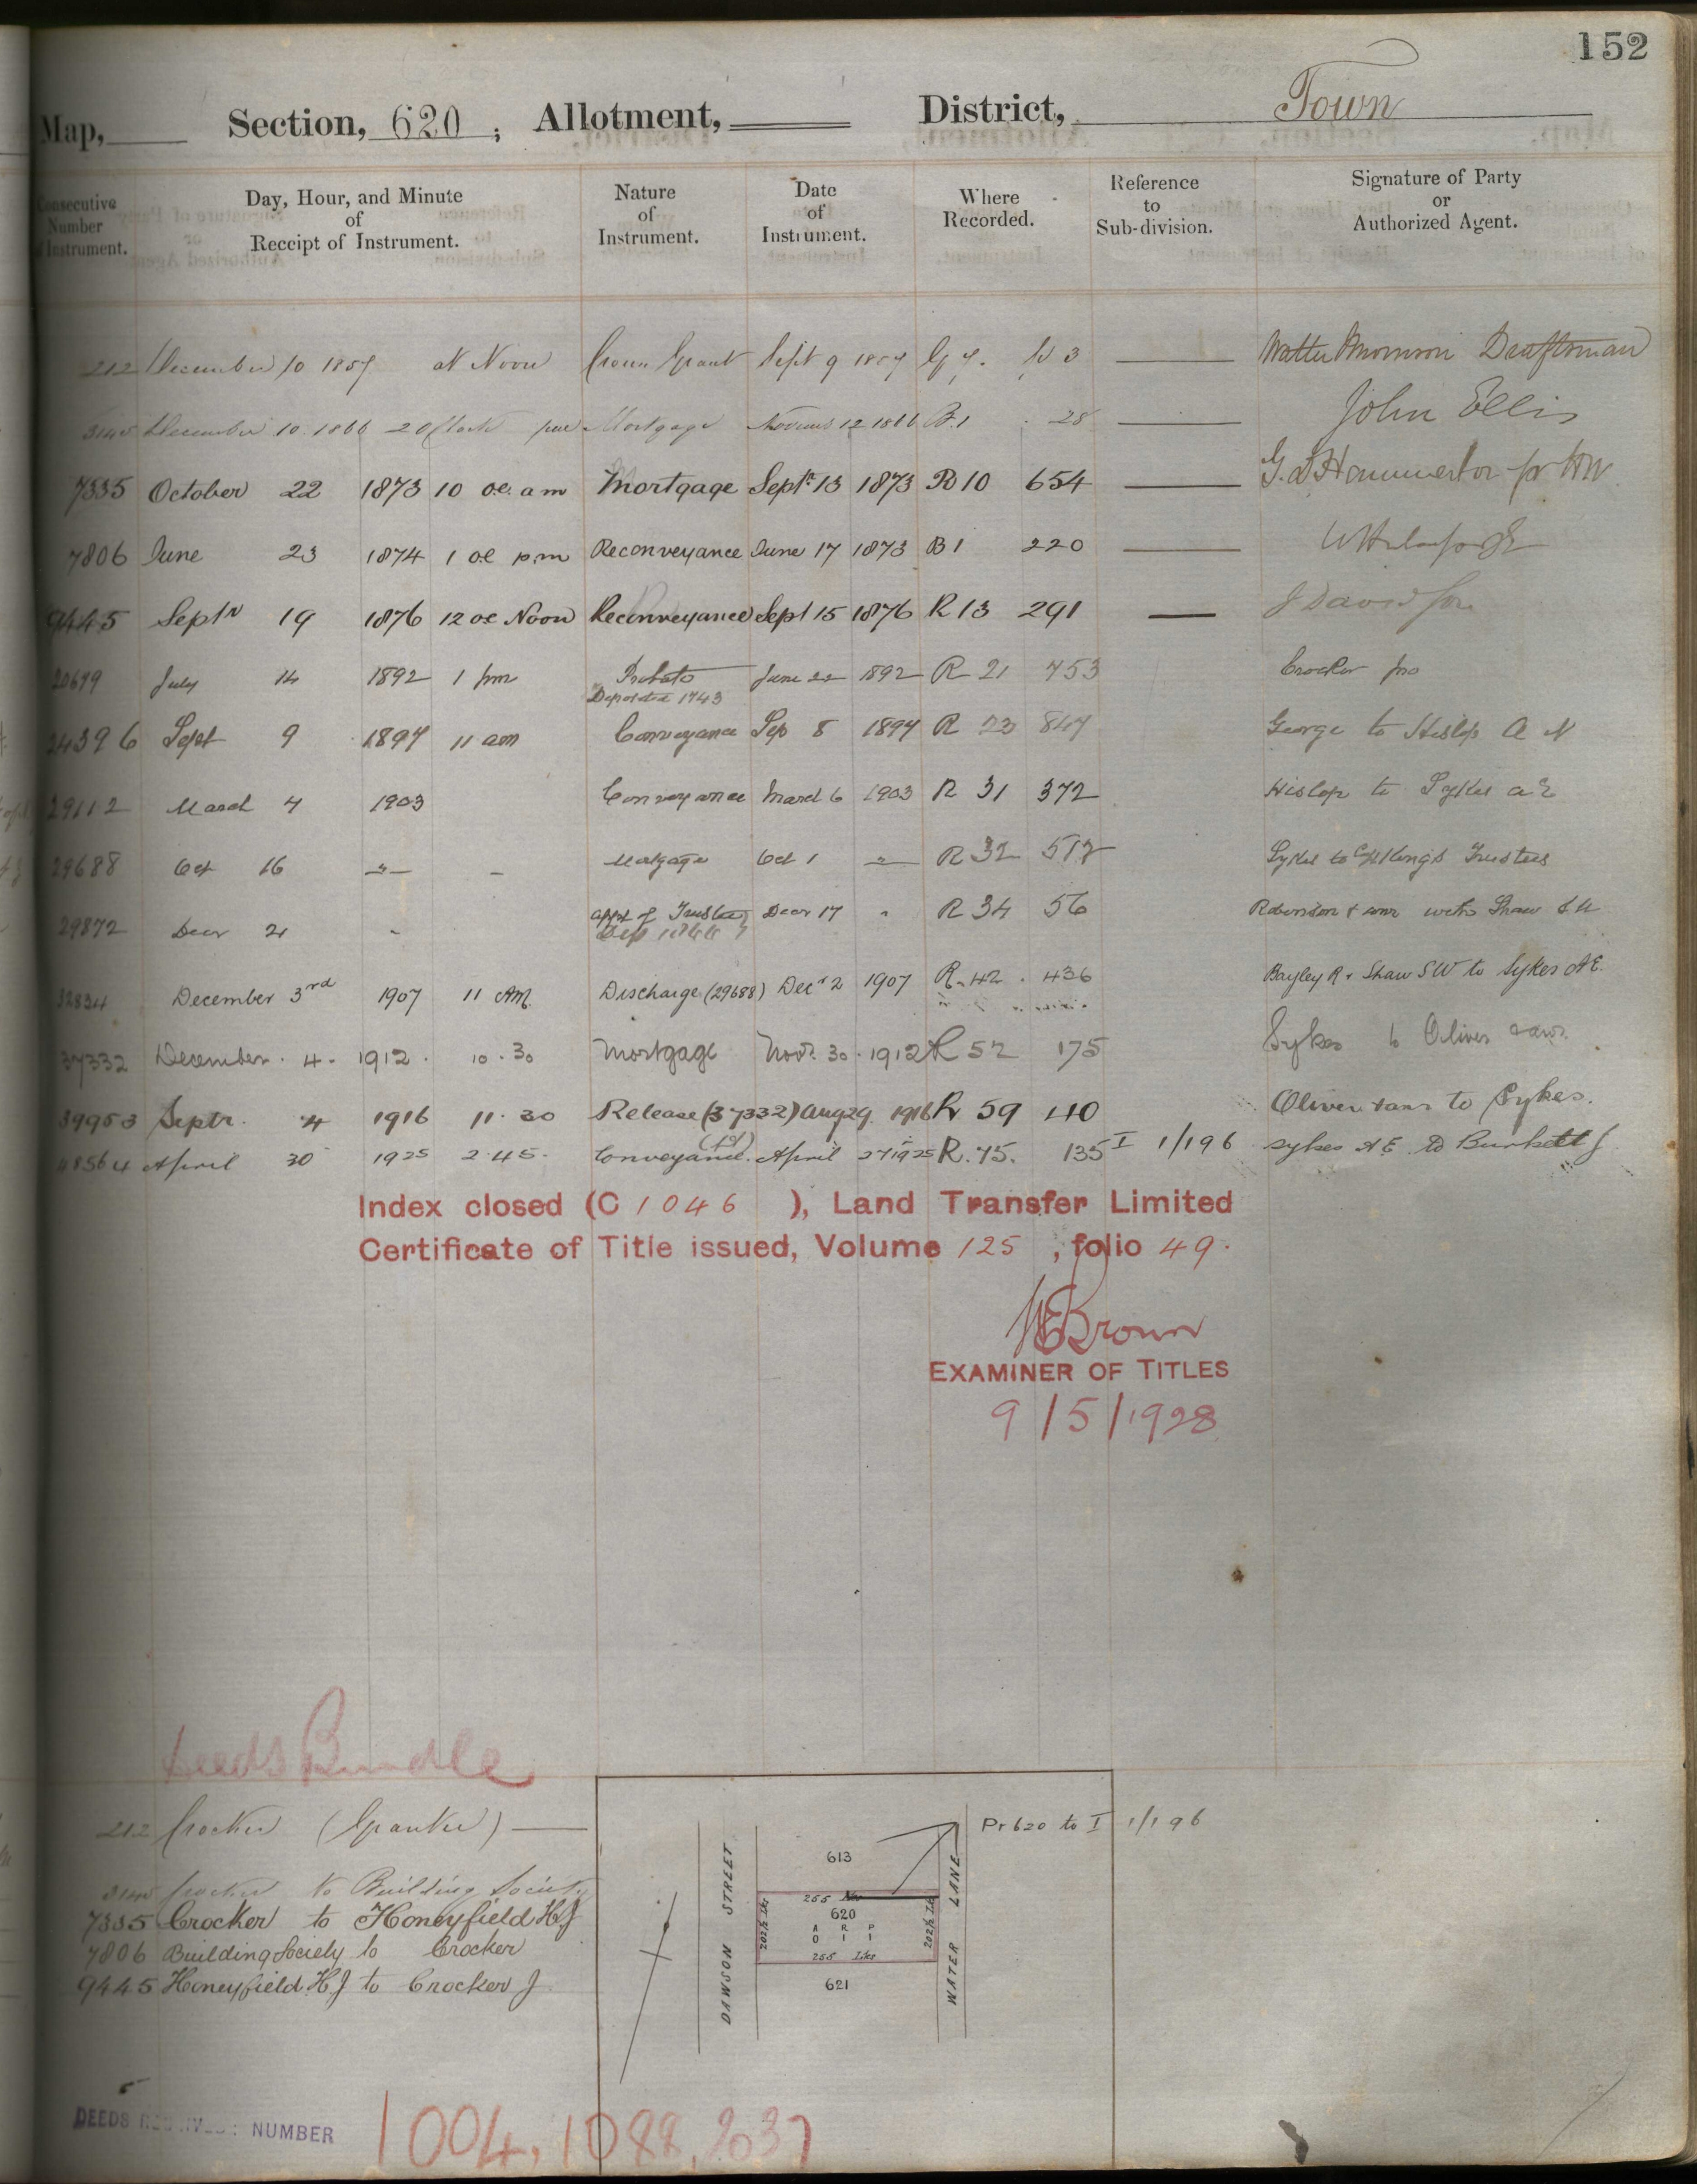 152
Map, Section, 620 ; Allotment, District, Town
Consecutive Number of Instrument.
Day, Hour, and Minute of Receipt of Instrument.
Nature of Instrument.
Date of Instrument.
Where Recorded.
Reference to Sub-division.
Signature of Party or Authorized Agent.
212 December 10 1857 at Noon Crown Grant Sept 9 1857 3 Draftsman
December 10. 1866 Mortgage 12 1866 B.1 28 John Ellis
7335 October 22 1873 10 oc am Mortgage Septr 13 1873 R 10 654
7806 June 23 1874 1 oc pm Reconveyance June 17 1873 B 1 220
9445 Septr 19 1876 12 oc Noon Reconveyance Sept 15 1876 R 13 291
July 14 1892 1 pm Probate June 22 1892 R 21 753 Crocker
Deposited 1743
24396 Sept 9 1897 11 am Conveyance Sep 8 1897 R 23 847 George to Hislop A N
29112 March 7 1903 Conveyance March 6 1903 R 31 372 Hislop to Sykes A E
29688 Oct 16 -"- - Mortgage Oct 1 -"- R 32 Sykes to Trustees
29872 Decr 21 " appt of Trustees Decr 17 " R 34 56 Robinson with Shaw
32834 December 3rd 1907 11 AM. Discharge (29688) Decr 2 1907 R. 42. 436 Bayley R & Shaw S W to Sykes A E.
37332 December. 4. 1912. 10.30 Mortgage Novr. 30. 1912 R 52 175 Sykes to Oliver & anr.
39953 Septr. 4 1916 11.30 Release (37332) Aug 29 1916 R 59 110 Oliver & anr to Sykes.
48564 April 30 1925 2.45. Conveyance. (pt) April 27 1925 R. 75. 135 I 1/196 Sykes A E to Burkett J
Index closed (C 1046 ), Land Transfer Limited
Certificate of Title issued, Volume 125 , folio 49.
Brown
EXAMINER OF TITLES
9/5/1928
Deeds Bundle
212 Crocker (Grantee)
Crocker to Building Society
7335 Crocker to Honeyfield H J
7806 Building Society to Crocker
9445 Honeyfield. H J to Crocker J
Pt 620 to I 1/196
613
DAWSON STREET
WATER LANE
255 Lks
620
A R P
0 1 1
202½ Lks
202½ Lks
255 Lks
621
DEEDS NUMBER
1004, 1088, 2037